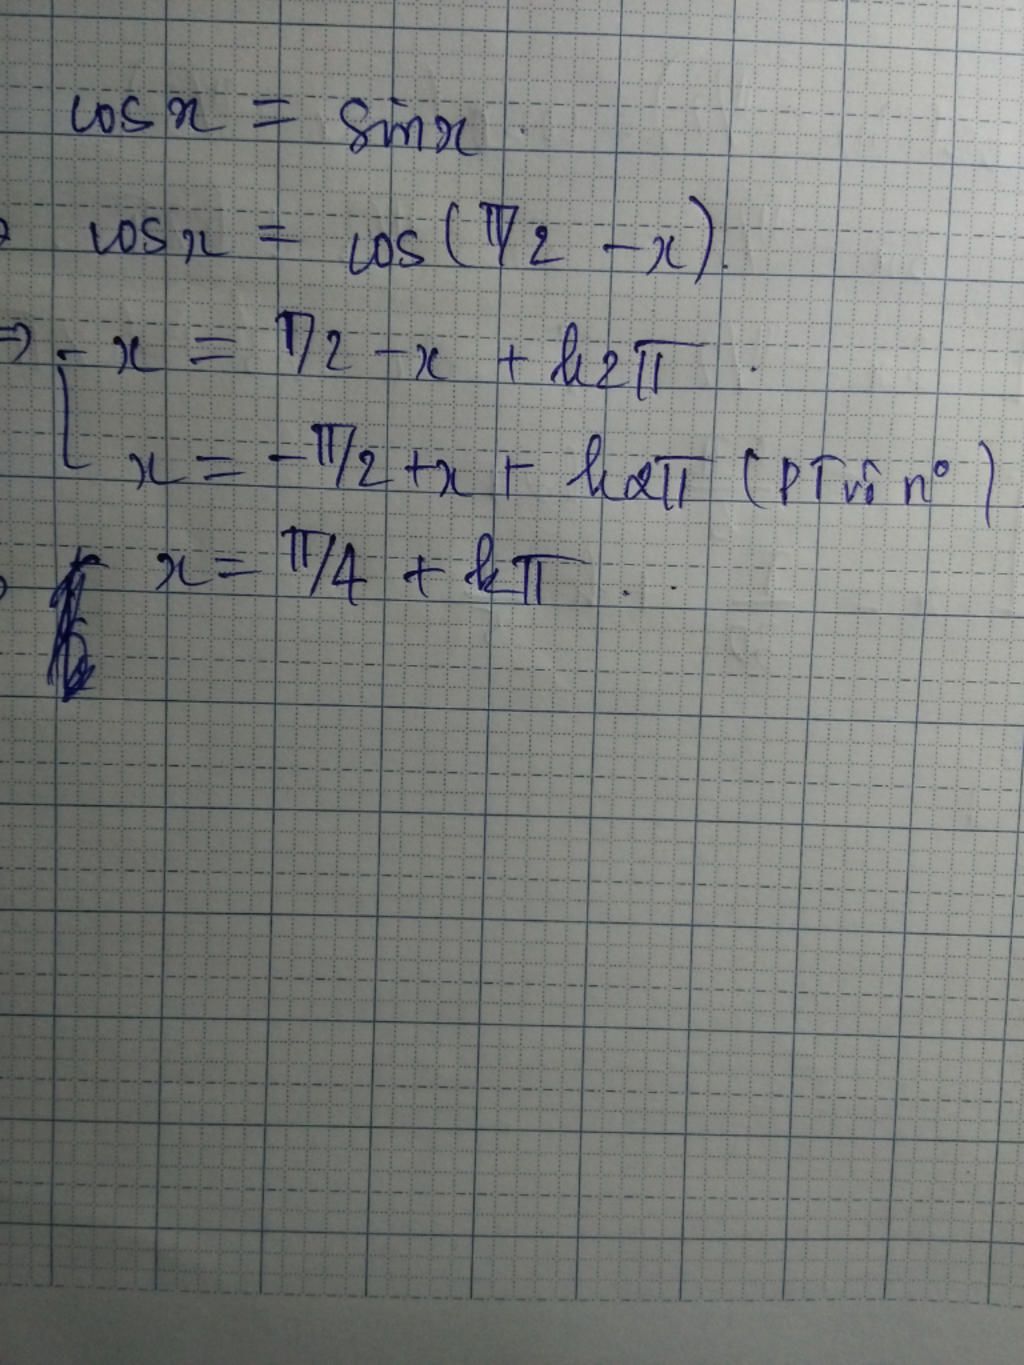 cos x = sin x.
⇒ cos x = cos(π/2 - x).
⇒ [ x = π/2 - x + k2π.
x = -π/2 + x + k2π (PT vô n°)
⇒ x = π/4 + kπ...